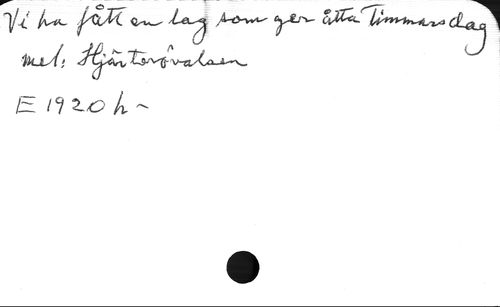 Vi ha fått en lag som ger åtta timmarsdag
mel: Hjärterövalsen
E 1920 h -